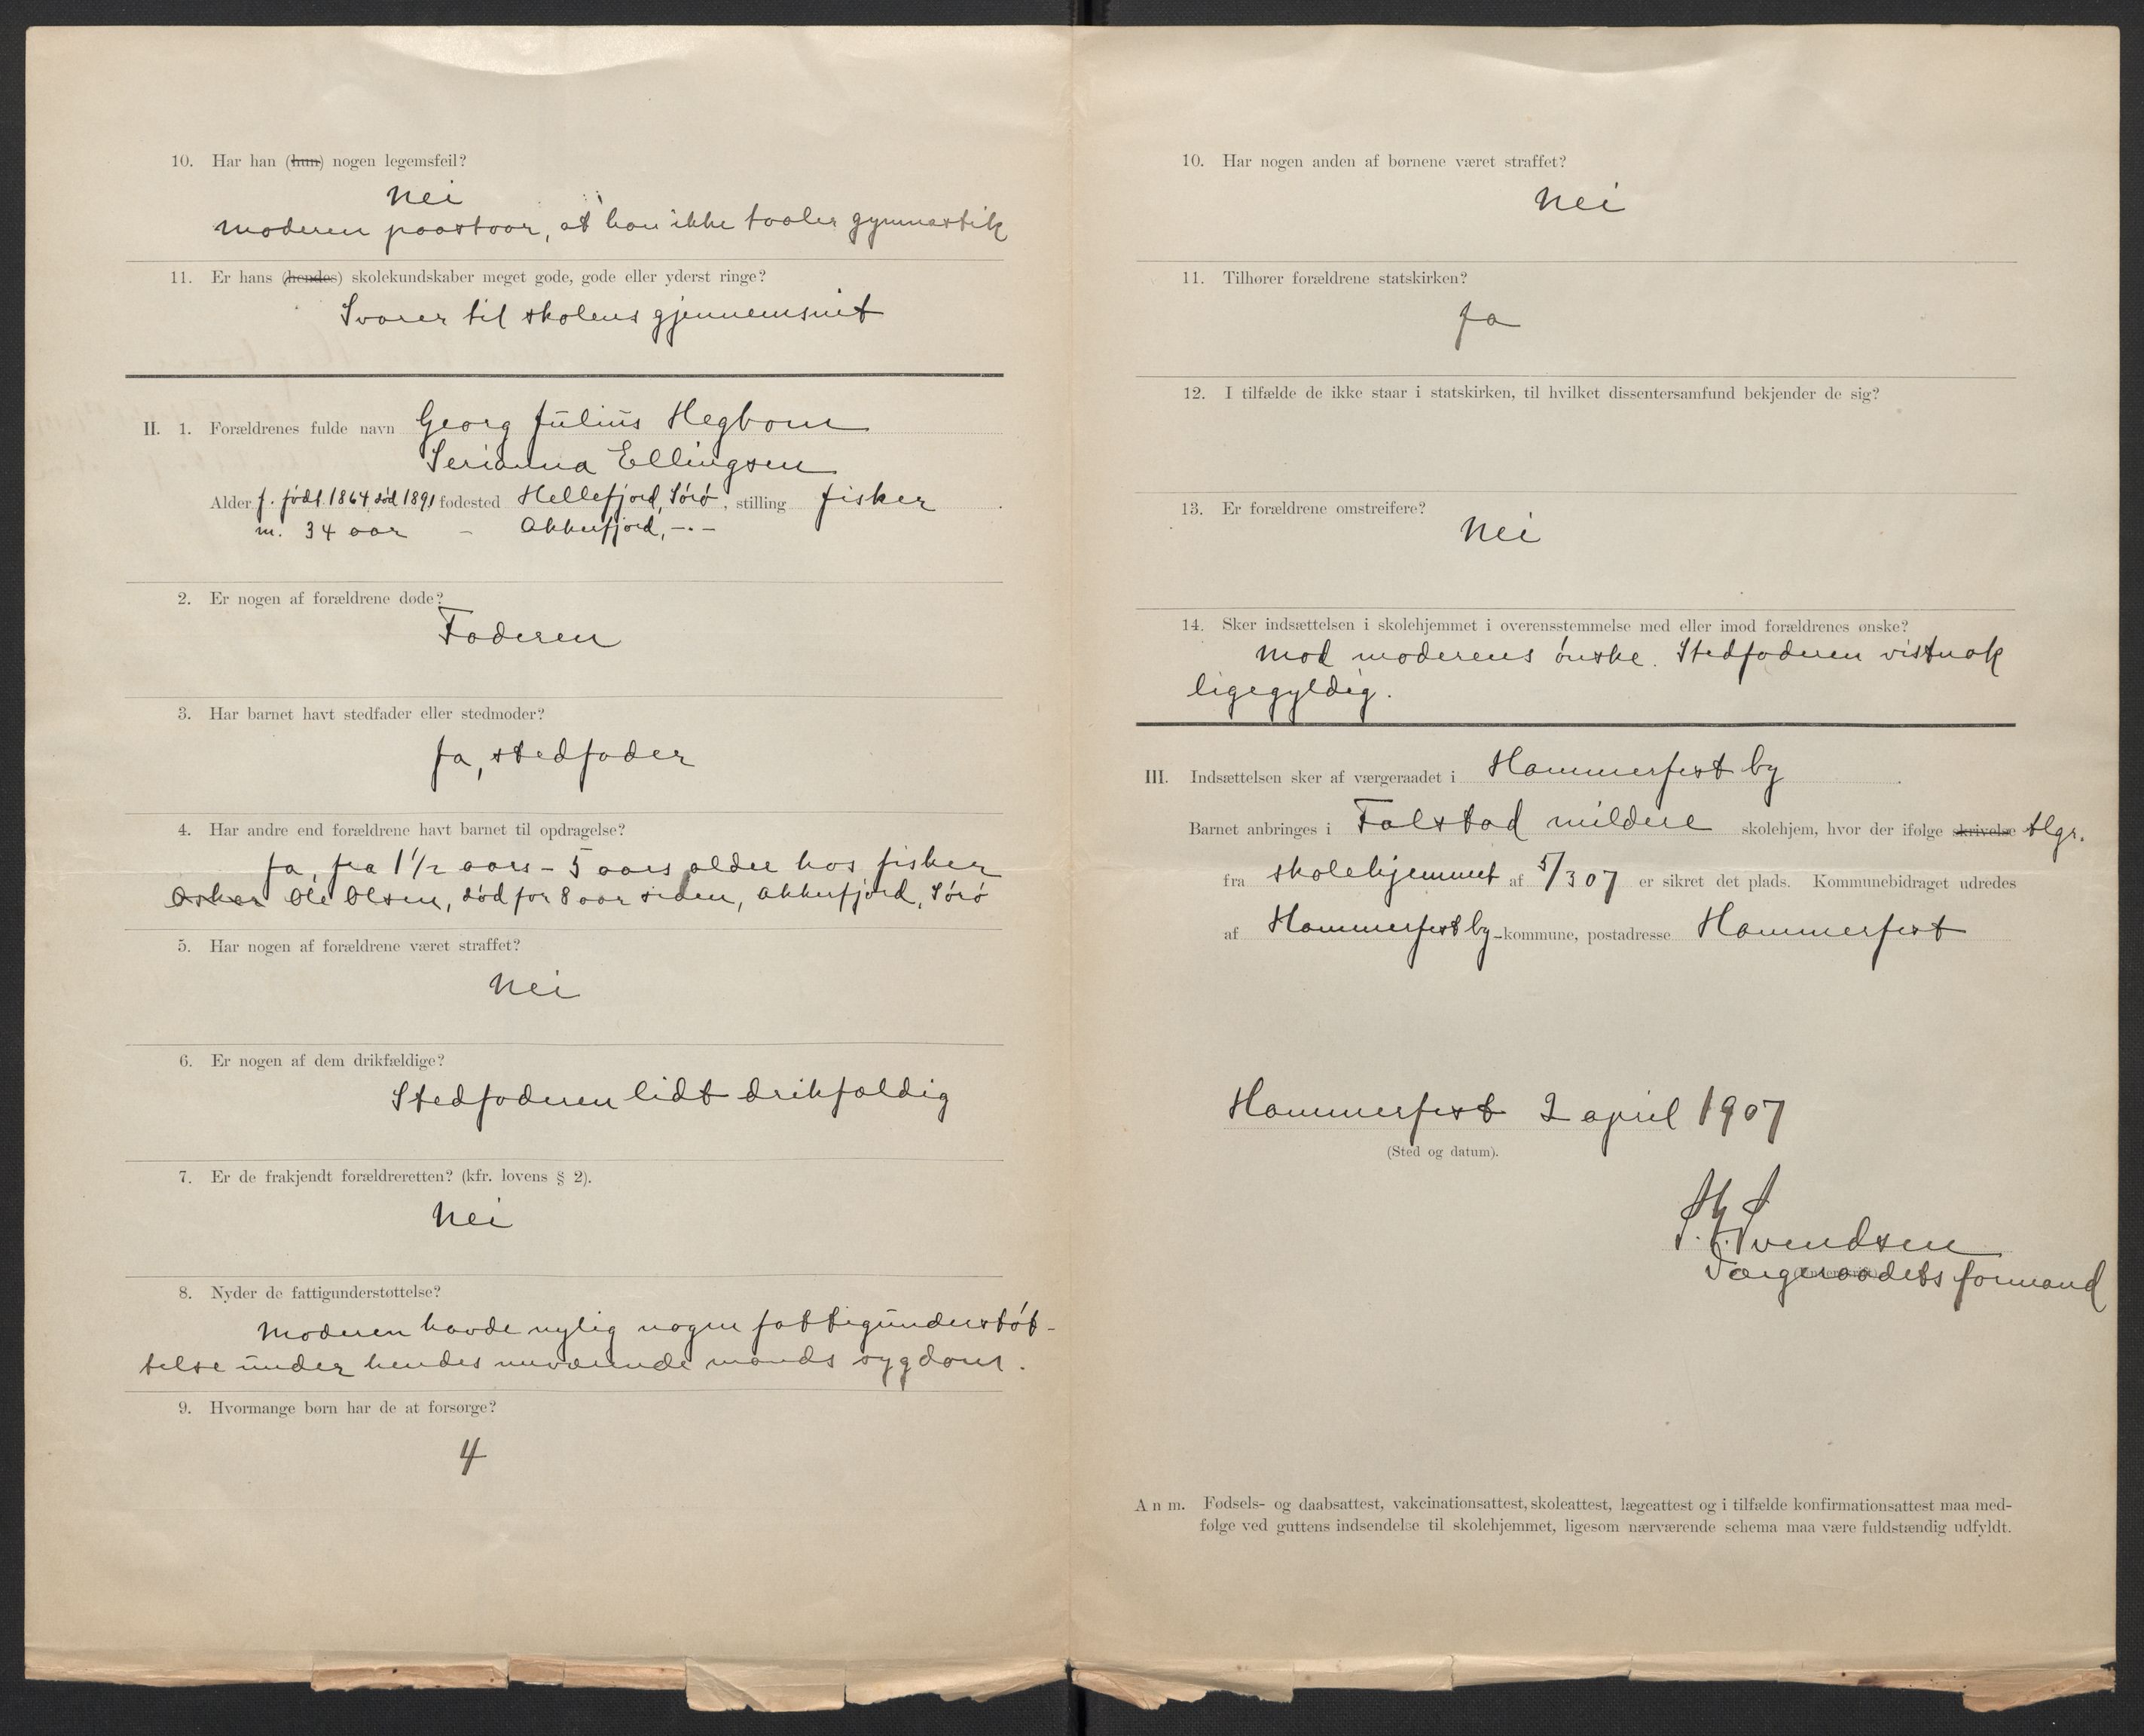 10. Har han (hun) nogen legemsfeil?
Nei
Moderen paastaar, at han ikke taaler gymnastik
11. Er hans (hendes) skolekundskaber meget gode, gode eller yderst ringe?
Svarer til skolens gjennemsnit
II. 1. Forældrenes fulde navn Georg Julius Hegbom
Serianna Ellingsen
Alder f. født 1864, død 1891 fødested Hellefjord, Sørø, stilling fisker
m. 34 aar – Akkerfjord, –.–
2. Er nogen af forældrene døde?
Faderen
3. Har barnet havt stedfader eller stedmoder?
Ja, stedfader
4. Har andre end forældrene havt barnet til opdragelse?
Ja, fra 1 1/2 aars – 5 aars alder hos fisker
Oskar Ole Olsen, død for 8 aar siden, Akkerfjord, Sørø
5. Har nogen af forældrene været straffet?
Nei
6. Er nogen af dem drikfældige?
Stedfaderen lidt drikfældig
7. Er de frakjendt forældreretten? (kfr. lovens § 2).
Nei
8. Nyder de fattigunderstøttelse?
Moderen havde nylig nogen fattigunderstøt-
telse under hendes nuværende mands sygdom.
9. Hvormange børn har de at forsørge?
4
10. Har nogen anden af børnene været straffet?
Nei
11. Tilhører forældrene statskirken?
Ja
12. I tilfælde de ikke staar i statskirken, til hvilket dissentersamfund bekjender de sig?
13. Er forældrene omstreifere?
Nei
14. Sker indsættelsen i skolehjemmet i overensstemmelse med eller imod forældrenes ønske?
Mod moderens ønske. Stedfaderen vistnok
ligegyldig.
III. Indsættelsen sker af værgeraadet i Hammerfest by.
Barnet anbringes i Falstad mildere skolehjem, hvor der ifølge skrivelse tlgr.
fra skolehjemmet af 5/3 07 er sikret det plads. Kommunebidraget udredes
af Hammerfest by-kommune, postadresse Hammerfest
Hammerfest 2 april 1907
(Sted og datum).
Svendsen
Værgeraadets formand
Anm. Fødsels- og daabsattest, vakcinationsattest, skoleattest, lægeattest og i tilfælde konfirmationsattest maa med-
følge ved guttens indsendelse til skolehjemmet, ligesom nærværende schema maa være fuldstændig udfyldt.